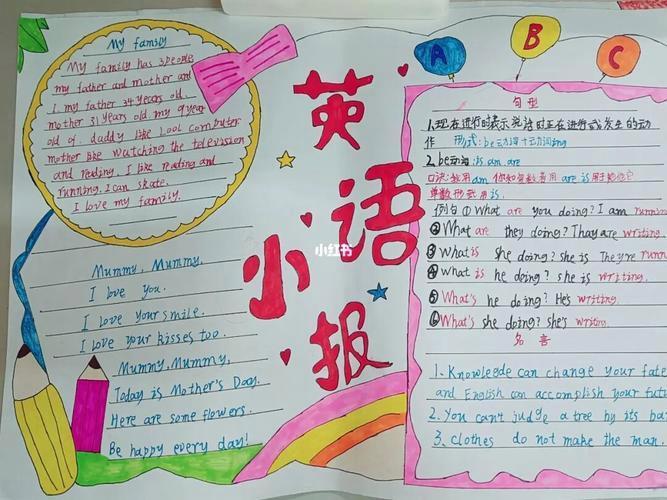 My family
My family has 3people
my father and mother and
I. my father 34 years old.
mother 31 years old. my 9year
old of. daddy like Look computer
mother like watching the television
and reading. I like reading and
running. I can skate.
I love my family.
Mummy, Mummy,
I love you.
I love your smile.
I love your kisses too.
Mummy, Mummy,
Today is Mother's Day.
Here are some flowers.
Be happy every day!
英语
小报
小红书
A B C
句型
1.现在进行时表示说话时正在进行或发生的动
作 形式:be动词+动词ing
2.be动词:is.am.are
口诀:我用am 你和复数着用are is用于他你它
单数形式用is.
例句①What are you doing? I am runnin
②What are they doing? Thay are writing.
③What is she doing? she is They're runn
④what is he doing? she is writing.
⑤What's he doing? He's writing.
⑥What's she doing? she's writing.
名言
1. Knowlegde can change your fate
and English can accomplish your futu
2. You can't judge a tree by its ba
3. clothes do not make the man.